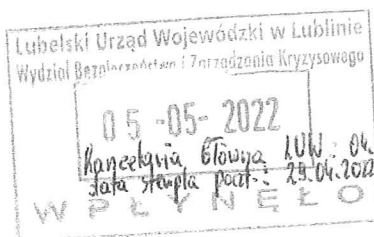 Lubelski Urząd Wojewódzki w Lublinie
Wydział Bezpieczeństwa i Zarządzania Kryzysowego
05 -05- 2022
Kancelaria Główna LUW: 04.
data stempla poczt.: 29.04.2022
WPŁYNĘŁO